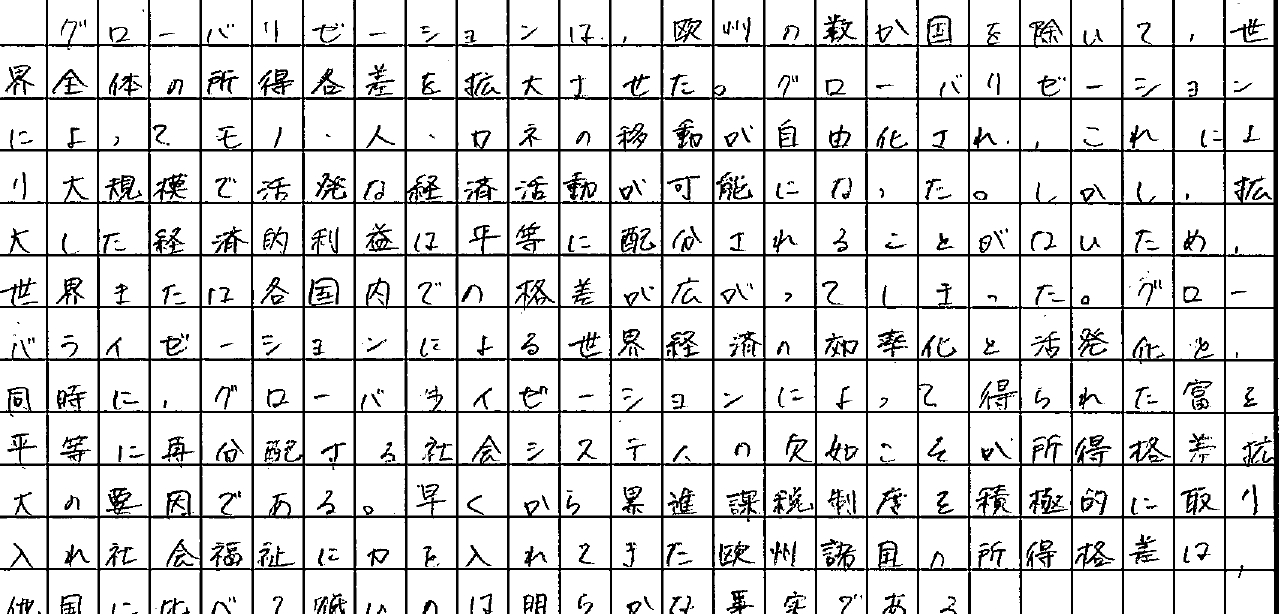 グローバリゼーションは,欧州の数か国を除いて,世
界全体の所得各差を拡大させた。グローバリゼーション
によってモノ・人・カネの移動が自由化され,これによ
り大規模で活発な経済活動が可能になった。しかし,拡
大した経済的利益は平等に配分されることがはいため,
世界または各国内での格差が広がってしまった。グロー
バライゼーションによる世界経済の効率化と活発化と,
同時に,グローバライゼーションによって得られた富を
平等に再分配する社会システムの欠如こそが所得格差拡
大の要因である。早くから累進課税制度を積極的に取り
入れ社会福祉に力を入れてきた欧州諸国の所得格差は,
他国に比べて低いのは明らかな事実である